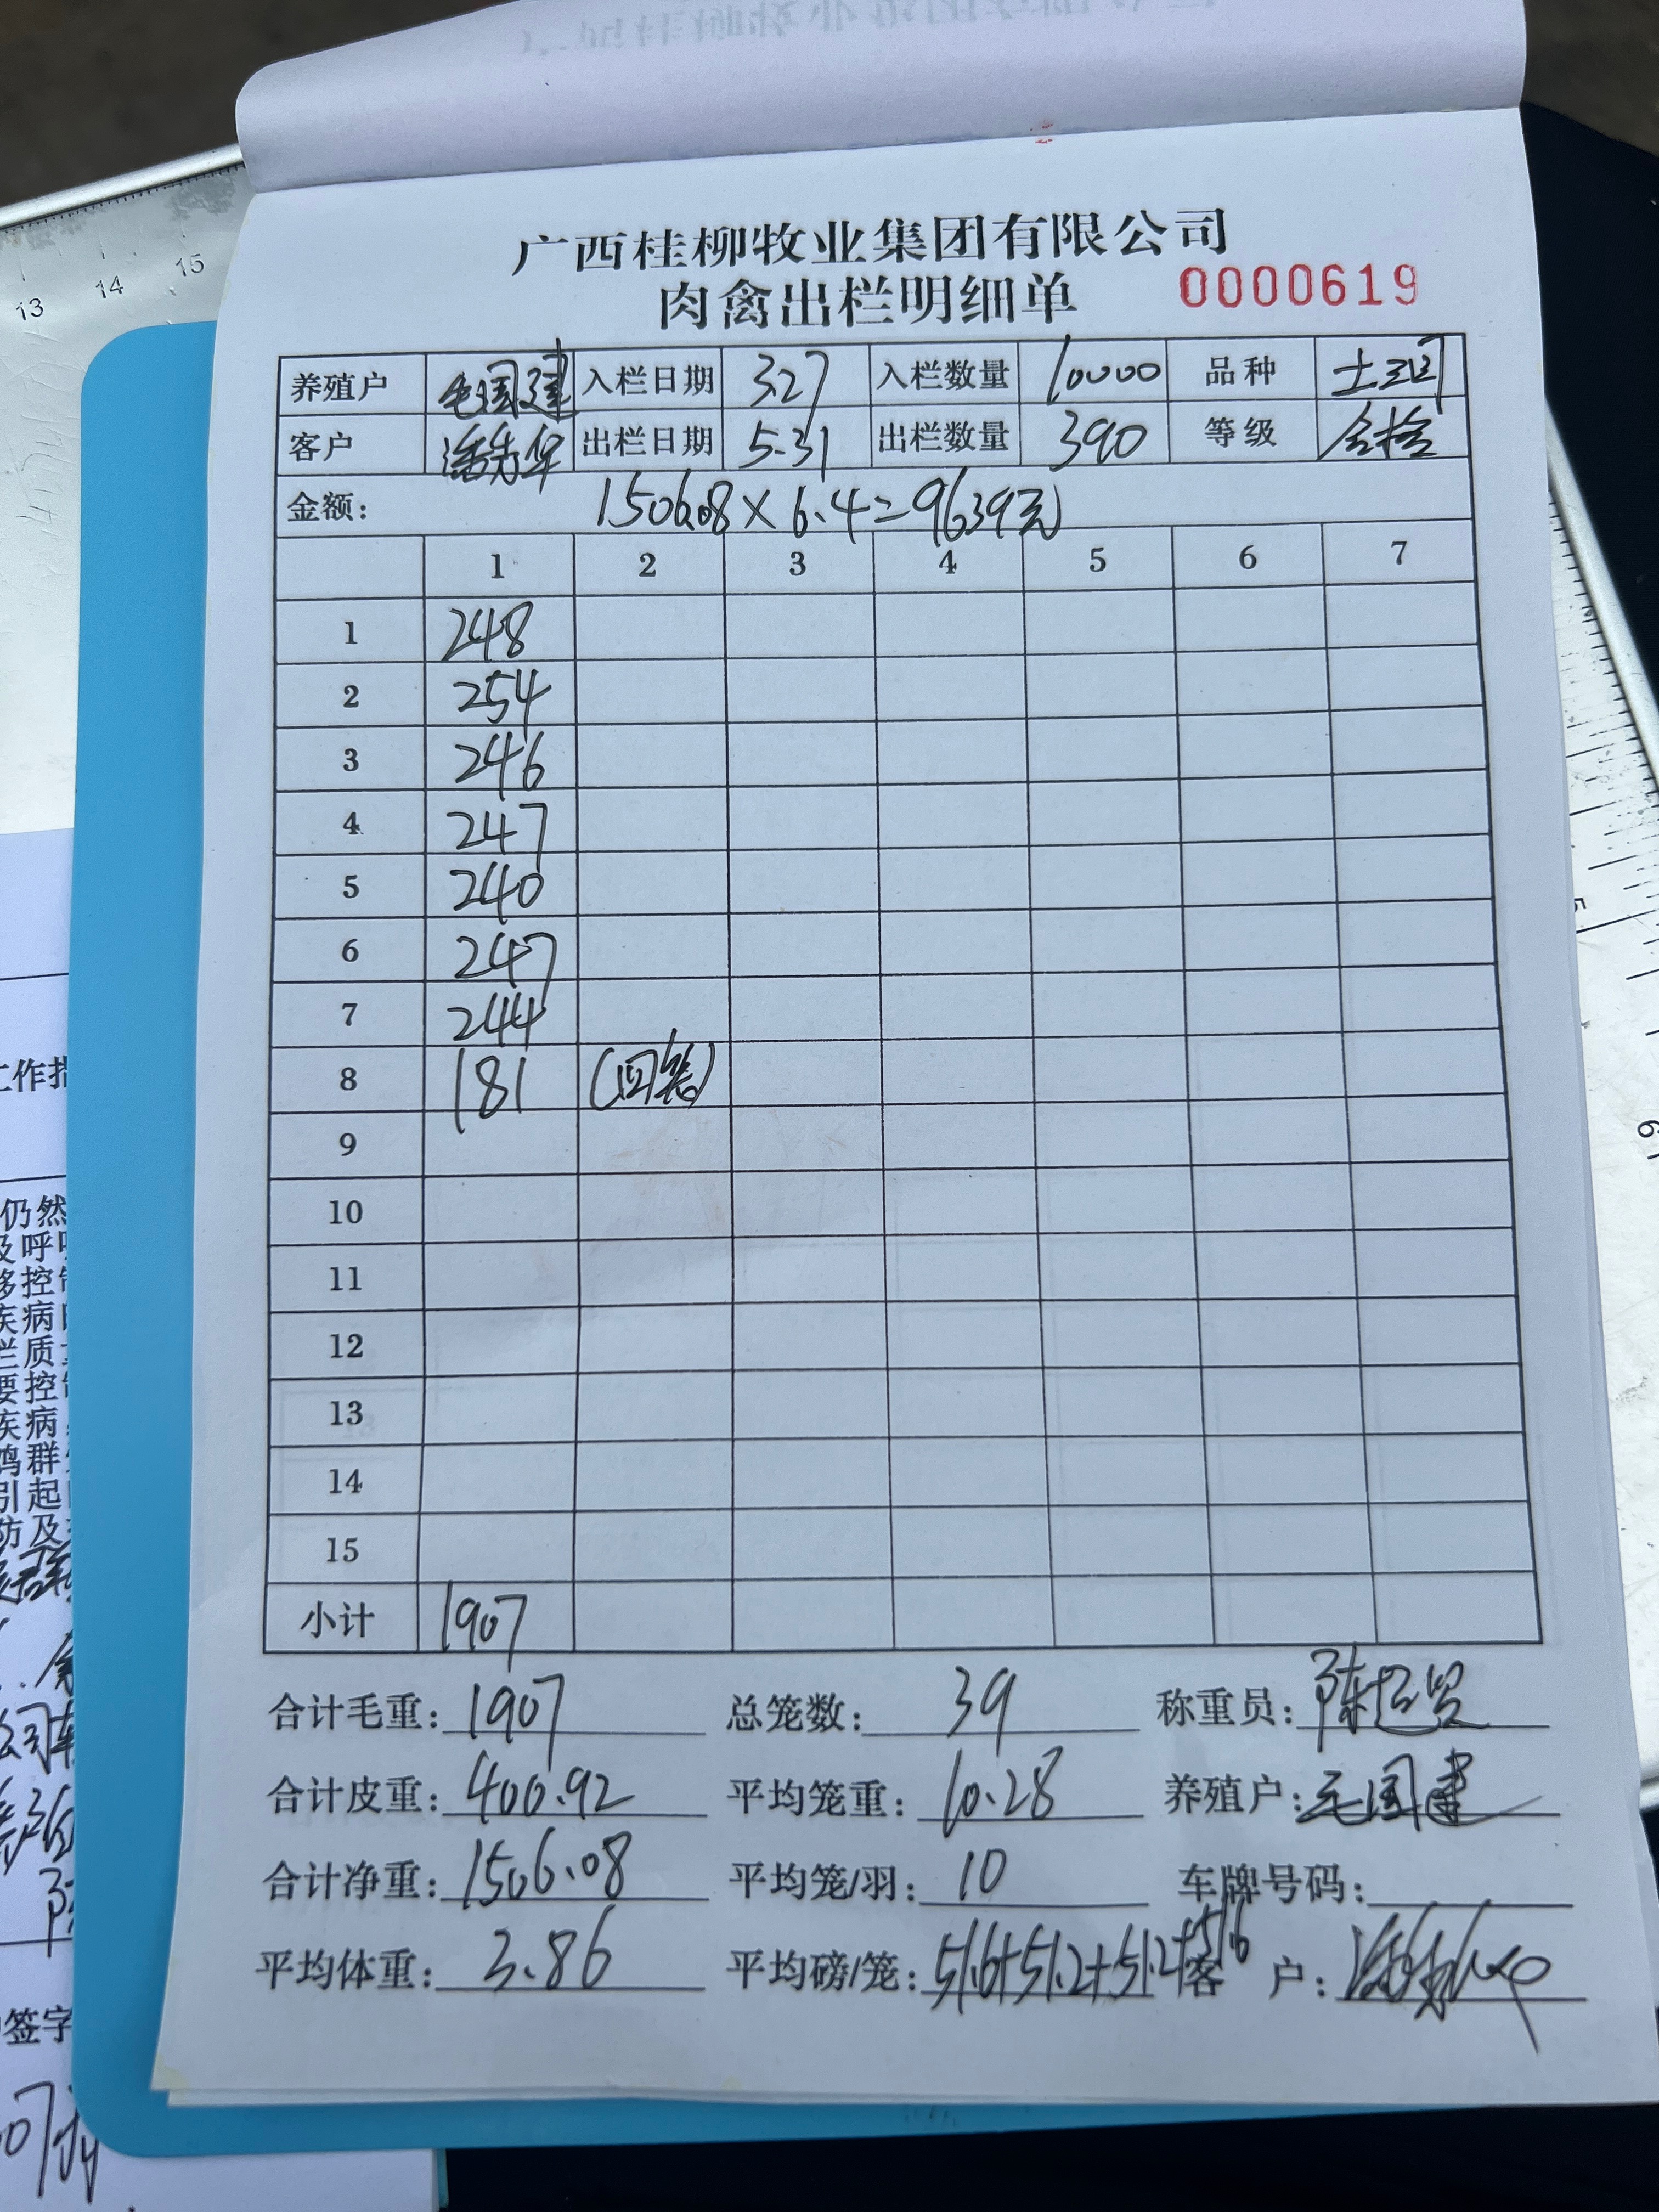 广西桂柳牧业集团有限公司
肉禽出栏明细单 0000619
养殖户 毛国建 入栏日期 3.27 入栏数量 10000 品种 土
客户 出栏日期 5.31 出栏数量 390 等级 合格
金额: 1506.08×6.4=9639元
1 2 3 4 5 6 7
1 248
2 254
3 246
4 247
5 240
6 247
7 244
8 181 (四笼)
9
10
11
12
13
14
15
小计 1907
合计毛重: 1907 总笼数: 39 称重员: 陈
合计皮重: 400.92 平均笼重: 10.28 养殖户: 毛国建
合计净重: 1506.08 平均笼/羽: 10 车牌号码:
平均体重: 3.86 平均磅/笼: 51.6+51.2+51.2+51.6 客 户:
13 14 15
工作指
仍然
及呼
够控制
疾病
栏质
要控制
疾病
鸡群
引起
防及
签字